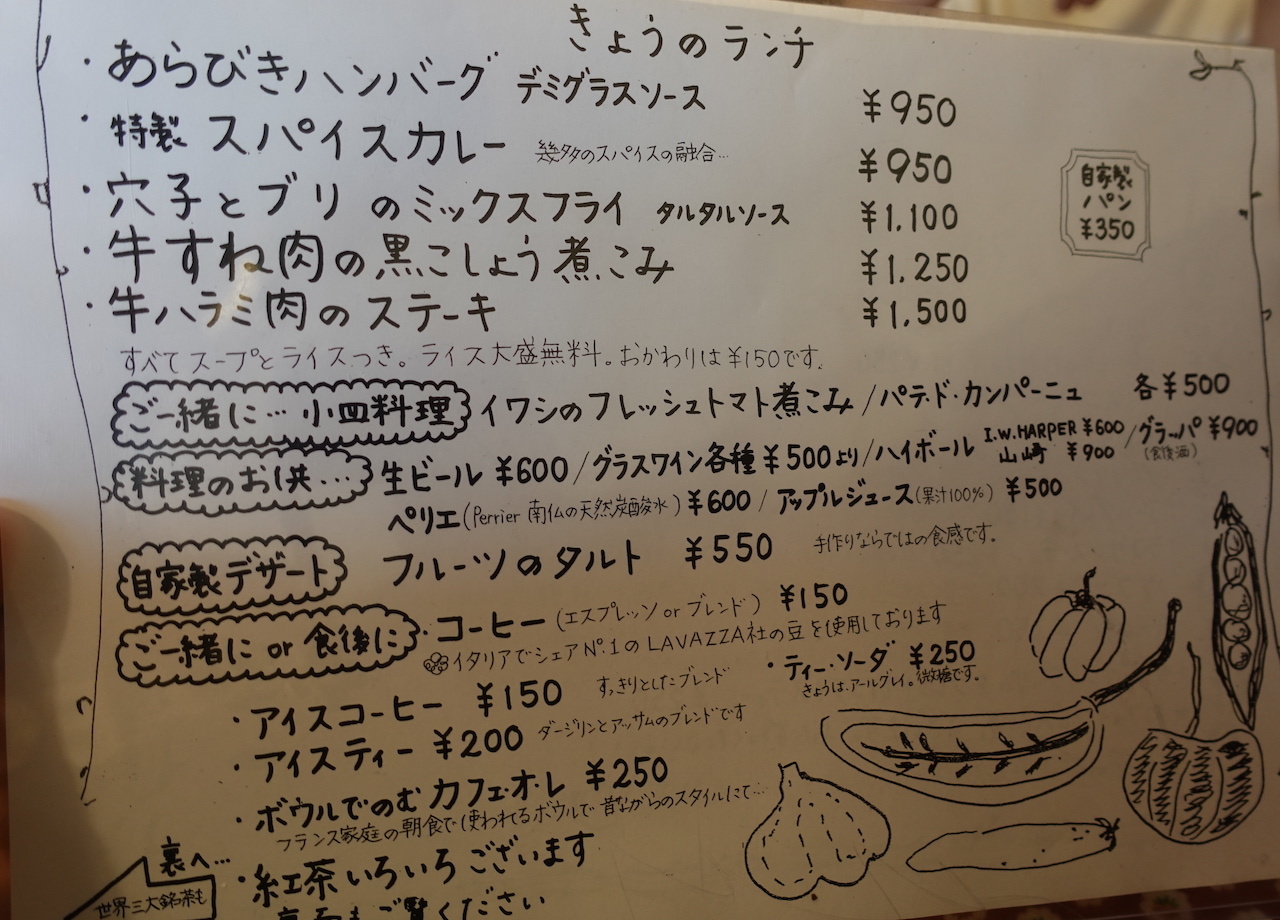 きょうのランチ
・あらびきハンバーグ デミグラスソース ¥950
・特製 スパイスカレー 幾多のスパイスの融合… ¥950
・穴子とブリのミックスフライ タルタルソース ¥1,100
・牛すね肉の黒こしょう煮こみ ¥1,250
・牛ハラミ肉のステーキ ¥1,500
自家製
パン
¥350
すべてスープとライスつき。ライス大盛無料。おかわりは¥150です。
ご一緒に… 小皿料理 イワシのフレッシュトマト煮こみ/パテ・ド・カンパーニュ 各¥500
料理のお供… 生ビール ¥600/グラスワイン各種¥500より/ハイボール I.W.HARPER ¥600 山崎 ¥900/グラッパ¥900
(食後酒)
ペリエ(Perrier 南仏の天然炭酸水)¥600/アップルジュース(果汁100%)¥500
自家製デザート フルーツのタルト ¥550 手作りならではの食感です。
ご一緒に or 食後に ・コーヒー(エスプレッソ or ブレンド) ¥150
イタリアでシェア Nº.1の LAVAZZA社の豆を使用しております
・アイスコーヒー ¥150 すっきりとしたブレンド
・ティー・ソーダ ¥250
きょうは、アールグレイ。微糖です。
・アイスティー ¥200 ダージリンとアッサムのブレンドです
・ボウルでのむカフェ・オ・レ ¥250
フランス家庭の朝食で使われてるボウルで昔ながらのスタイルにて…
裏へ…
世界三大銘茶も
・紅茶いろいろございます
もご覧ください